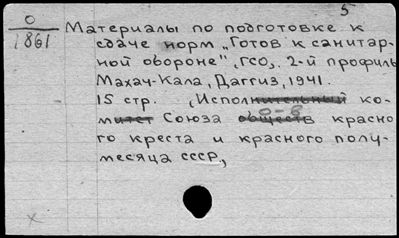 5
О
1861
Материалы по подготовке к
сдаче норм „Готов к санитар-
ной обороне", ГСО, 2-й профиль
Махач-Кала, Даггиз, 1941.
15 стр. (Исполнительный ко-
митет Союза обществ о-в красно
го креста и красного полу-
месяца СССР,